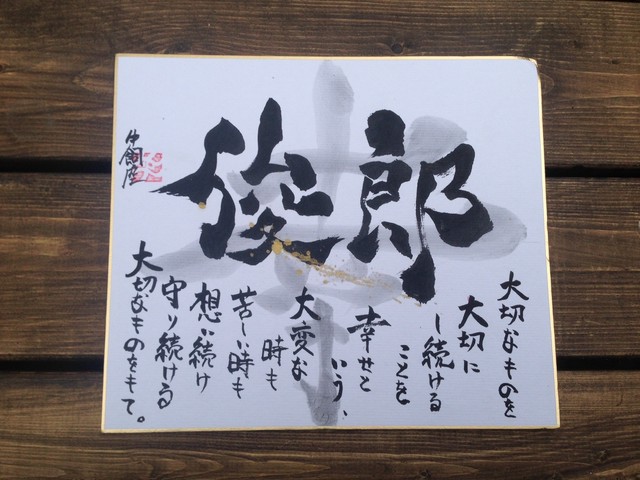 俊郎
幸
大切なものを
大切に
し続ける
ことを
幸せと
いう、
大変な
時も
苦しい時も
想い続け
守り続ける
大切なものをもて。